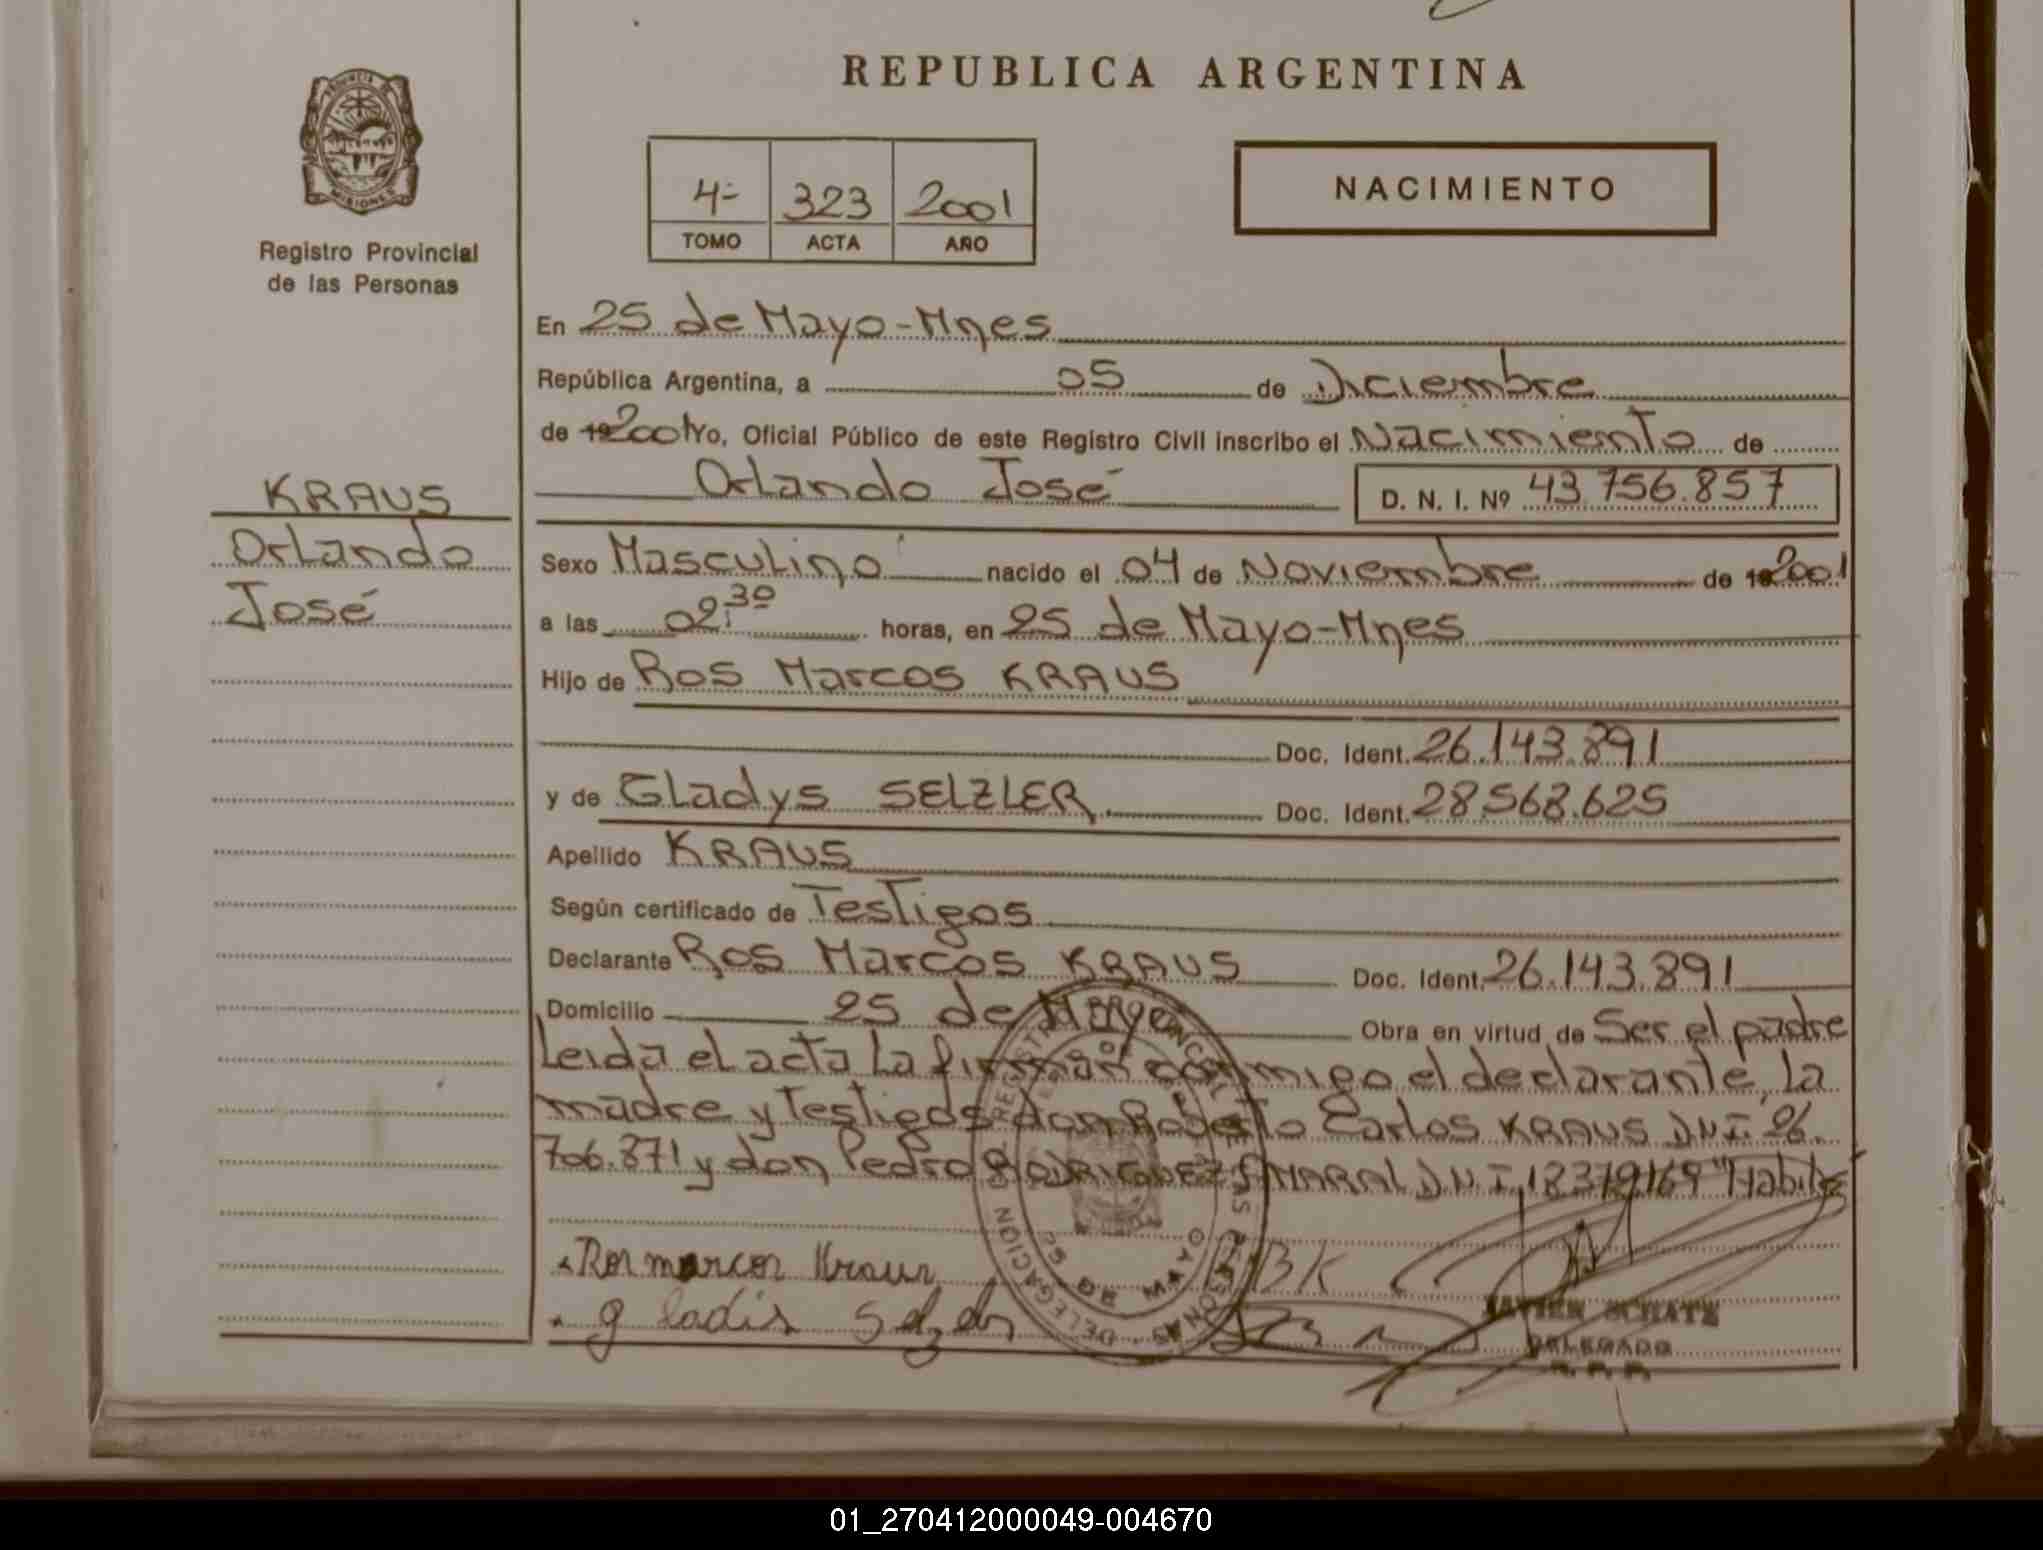 REPUBLICA ARGENTINA
PROVINCIA DE
MISIONES
Registro Provincial
de las Personas
4- 323 2001
TOMO ACTA AÑO
NACIMIENTO
En 25 de Mayo-Mnes
República Argentina, a 05 de Diciembre
de 192001 Yo, Oficial Público de este Registro Civil inscribo el Nacimiento de
Orlando José D. N. I. Nº 43.756.857
KRAUS
Orlando
José
Sexo Masculino nacido el 04 de Noviembre de 192001
a las 02:30 horas, en 25 de Mayo-Mnes
Hijo de Ros Marcos KRAUS
Doc. Ident. 26.143.891
y de Gladys SELZLER. Doc. Ident. 28.568.625
Apellido KRAUS
Según certificado de Testigos
Declarante Ros Marcos KRAUS Doc. Ident. 26.143.891
Domicilio 25 de Mayo Obra en virtud de Ser el padre
Leida el acta la firman conmigo el declarante, la
madre y Testigos don Roberto Carlos KRAUS D.N.I.
706.871 y don Pedro RODRIGUEZ AMARAL D.N.I. 18379169 "Habiles"
Ros marcos Kraus
RBK
gladis Selzler
DELEGACION 25 DE MAYO
JAVIER SCHATZ
DELEGADO
R. P. P.
01_270412000049-004670